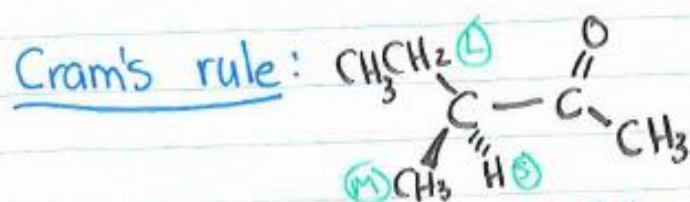 Cram's rule: CH₃CH₂ L O
C — C
CH₃
M CH₃ H S